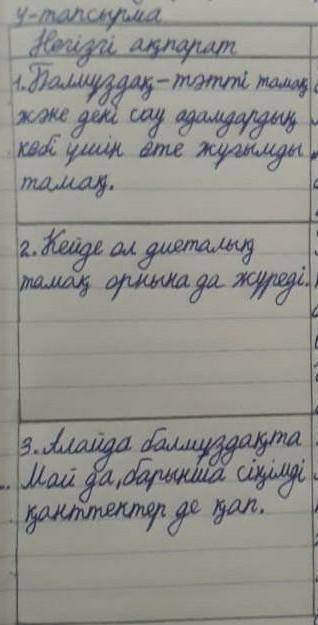 4-тапсырма
Негізгі ақпарат
1. Балмұздақ – тәтті тамақ
және дені сау адамдардың
көбі үшін өте жұғымды
тамақ.
2. Кейде ол диеталық
тамақ орнына да жүреді.
3. Алайда балмұздақта
Май да, барынша сіңімді
қанттектер де қап.